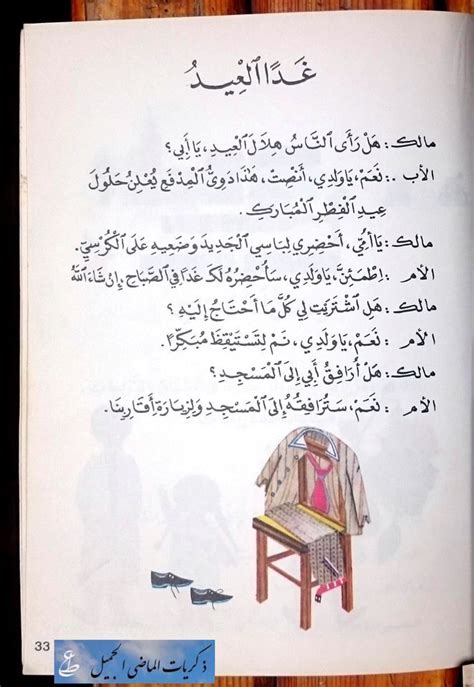 غَدًا الْعِيدُ
مالك : هَلْ رَأَى النَّاسُ هِلَالَ الْعِيدِ، يَا أَبِي؟
الأب : نَعَمْ، يَا وَلَدِي، أَنْصِتْ، هَٰذَا دَوِيُّ الْمِدْفَعِ يُعْلِنُ حُلُولَ
عِيدِ الْفِطْرِ الْمُبَارَكِ.
مالك : يَا أُمِّي، أَحْضِرِي لِبَاسِي الْجَدِيدَ وَضَعِيهِ عَلَى الْكُرْسِيِّ.
الأم : اِطْمَئِنَّ، يَا وَلَدِي، سَأُحْضِرُهُ لَكَ غَدًا فِي الصَّبَاحِ، إِنْ شَاءَ اللّٰهُ
مالك : هَلِ اشْتَرَيْتِ لِي كُلَّ مَا أَحْتَاجُ إِلَيْهِ؟
الأم : نَعَمْ، يَا وَلَدِي، نَمْ لِتَسْتَيْقِظَ مُبَكِّرًا.
مالك : هَلْ أُرَافِقُ أَبِي إِلَى الْمَسْجِدِ؟
الأم : نَعَمْ، سَتُرَافِقُهُ إِلَى الْمَسْجِدِ وَلِزِيَارَةِ أَقَارِبِنَا.
33
ذكريات الماضي الجميل